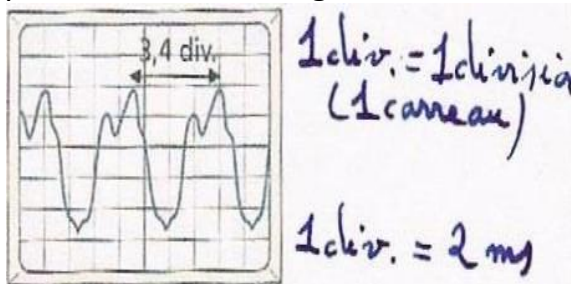 3,4 div.
1 div. = 1 division
(1 carreau)
1 div. = 2 ms